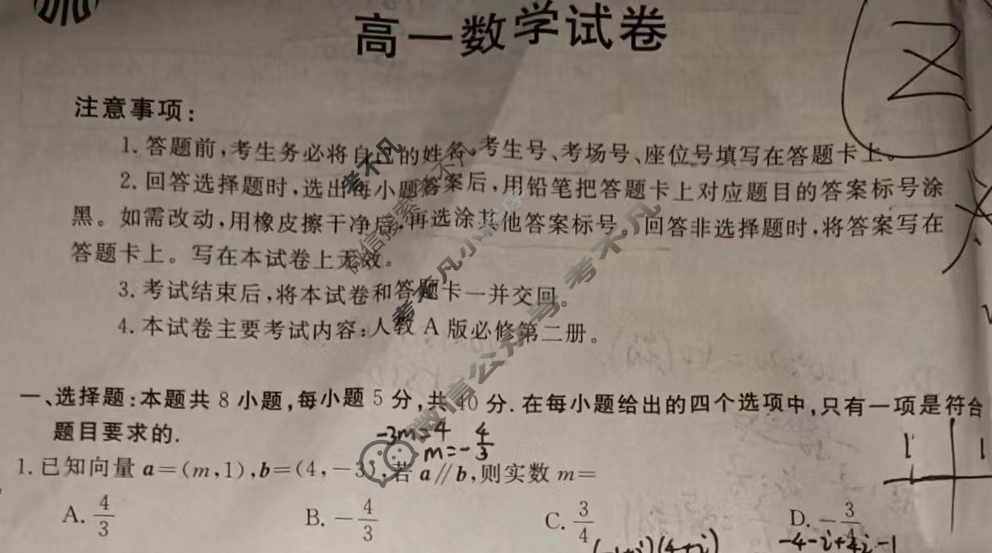 高一数学试卷
Z
注意事项:
1.答题前,考生务必将自己的姓名、考生号、考场号、座位号填写在答题卡上。
2.回答选择题时,选出每小题答案后,用铅笔把答题卡上对应题目的答案标号涂
黑。如需改动,用橡皮擦干净后,再选涂其他答案标号。回答非选择题时,将答案写在
答题卡上。写在本试卷上无效。
3.考试结束后,将本试卷和答题卡一并交回。
4.本试卷主要考试内容:人教A版必修第二册。
一、选择题:本题共8小题,每小题5分,共40分.在每小题给出的四个选项中,只有一项是符合
题目要求的.
-3m=4
m=-4/3
1.已知向量a=(m,1),b=(4,-3),若a∥b,则实数m=
A. 4/3 B. -4/3 C. 3/4 D. -3/4
-4-i+4i-1
微信搜索 考不凡
考不凡小程序
微信公众号:考不凡